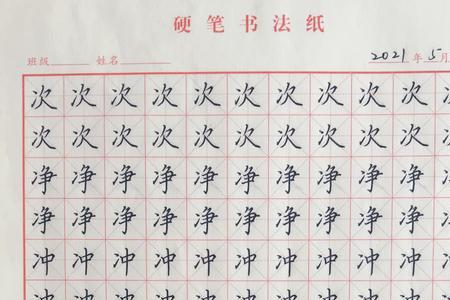 硬笔书法纸
班级 姓名 2021年5月
次次次次次次次次次次
次次次次次次次次次次
净净净净净净净净净净
净净净净净净净净净净
冲冲冲冲冲冲冲冲冲冲